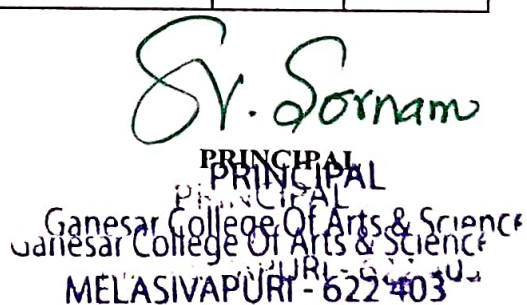 SV. Sornam
PRINCIPAL
PRINCIPAL
PRINCIPAL
Ganesar College Of Arts & Science
Ganesar College Of Arts & Science
MELASIVAPURI - 622 403